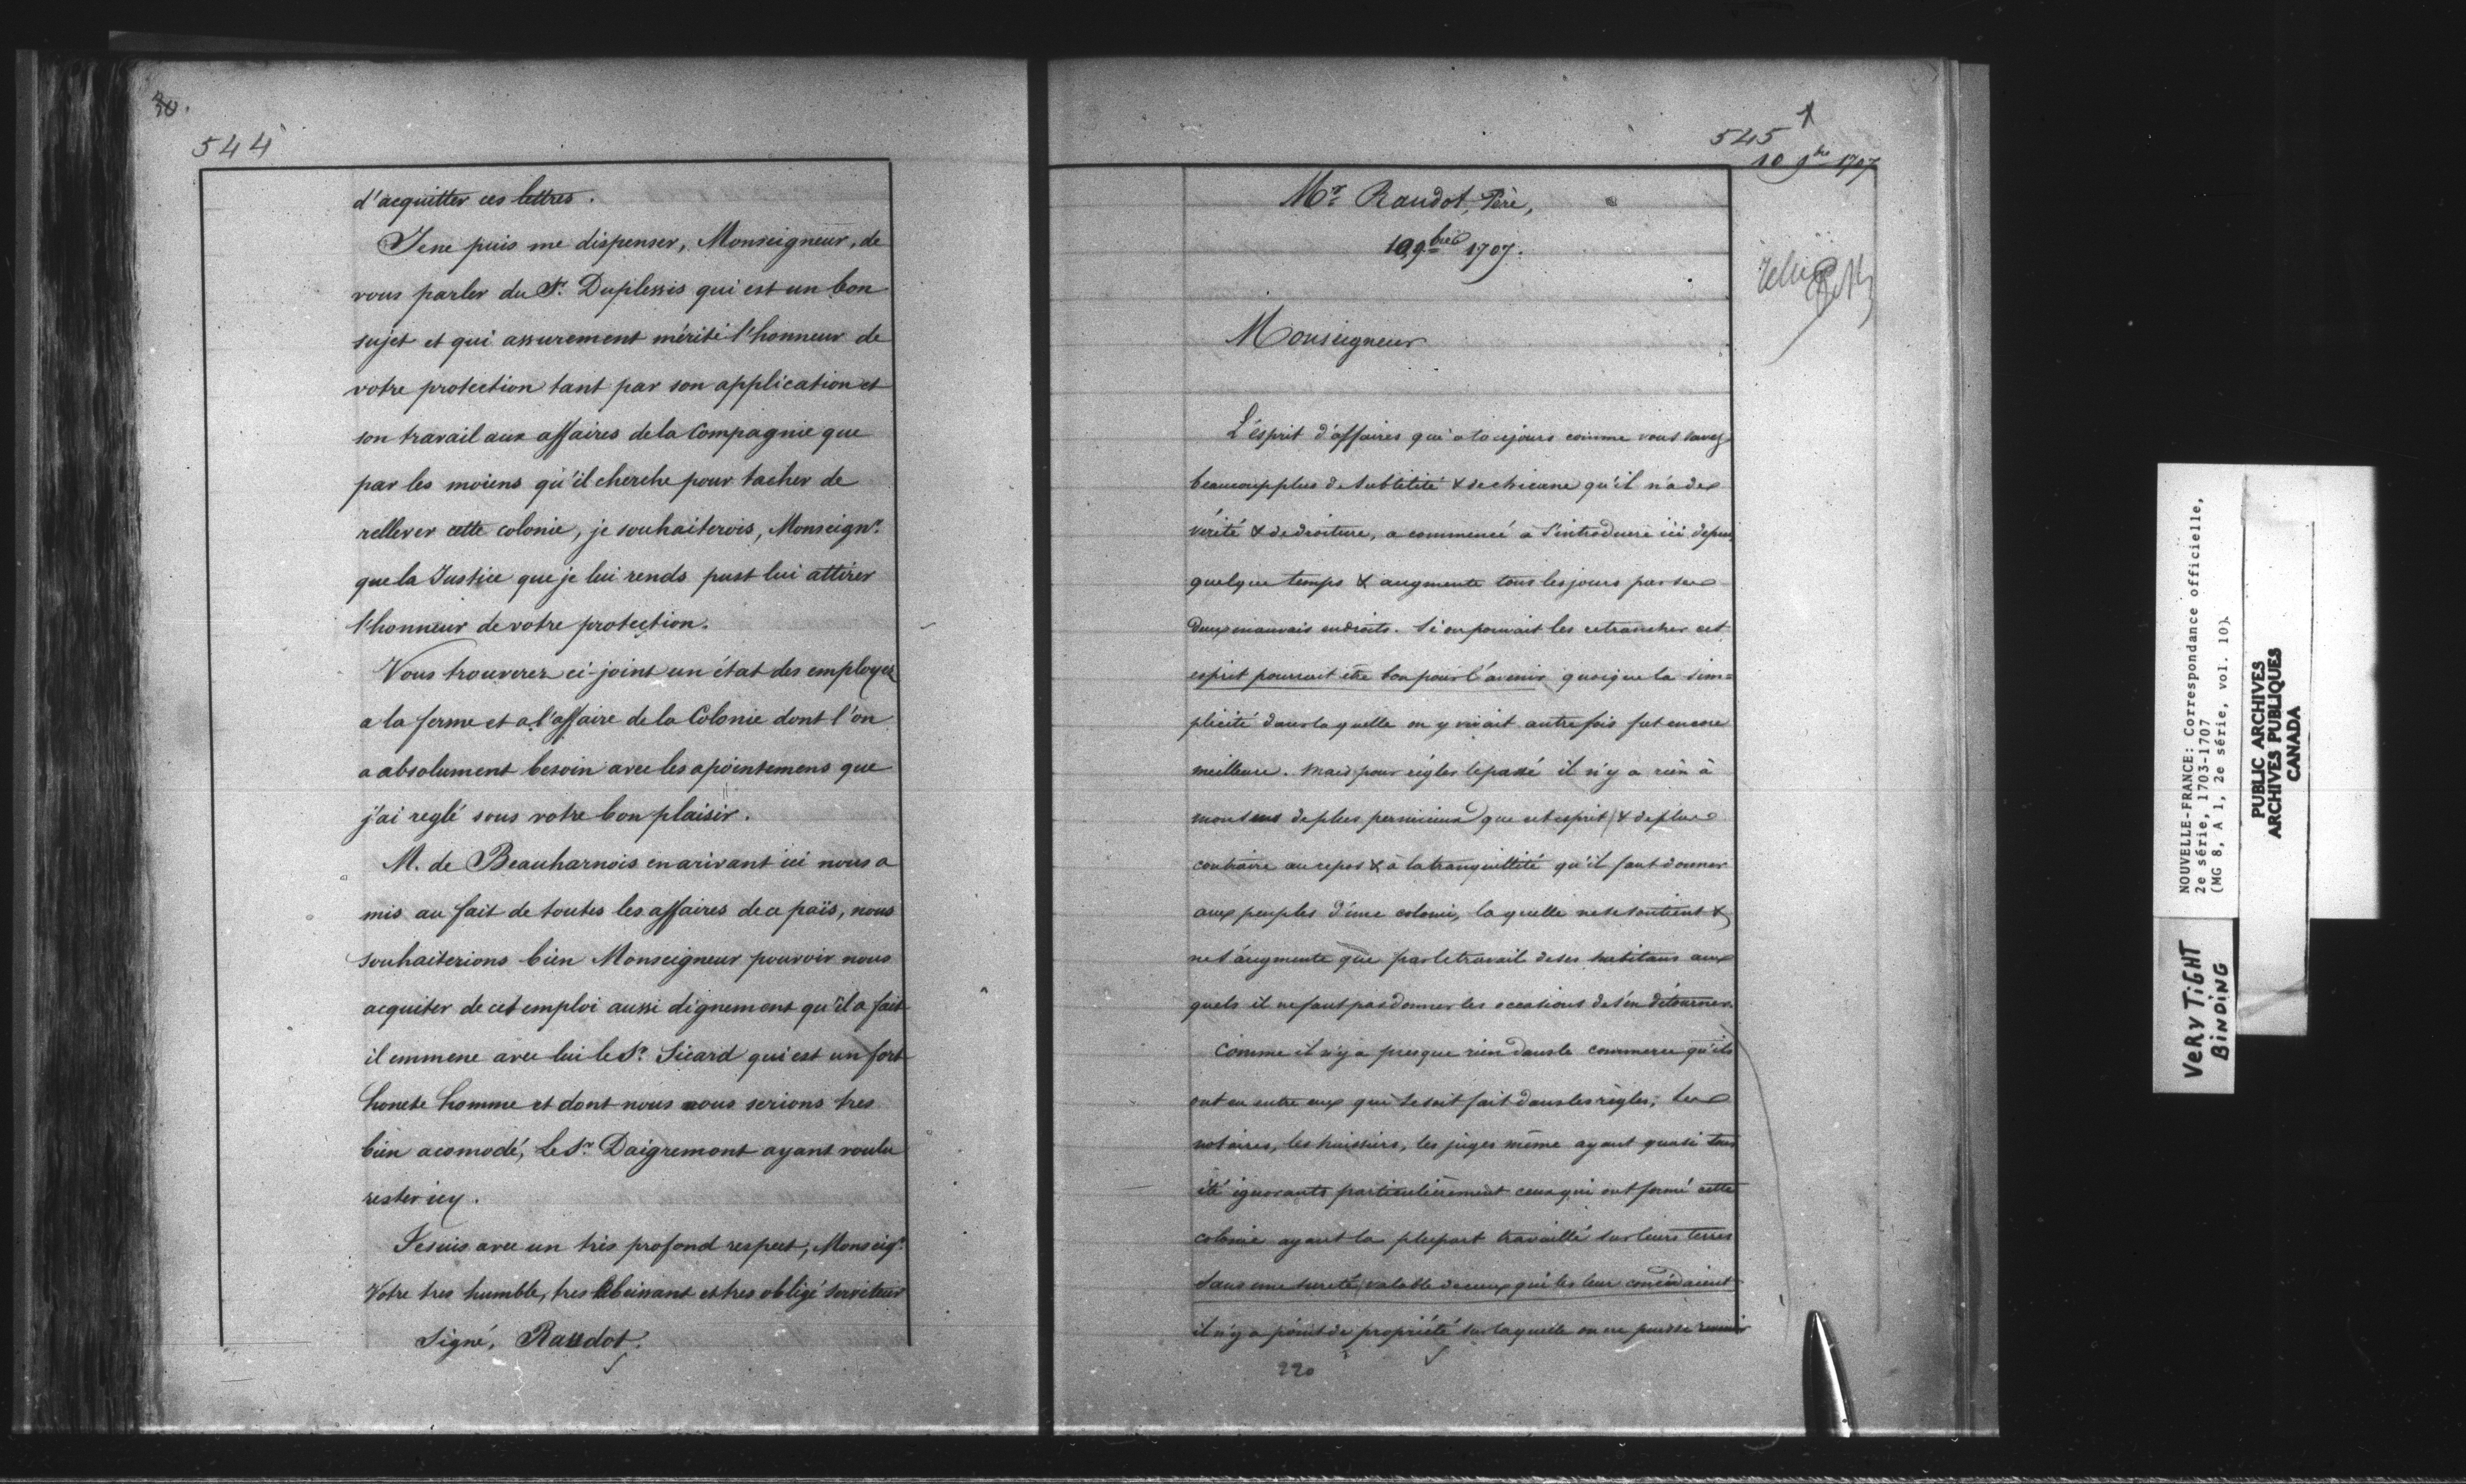 544
d'acquitter ces lettres.
Je ne puis me dispenser, Monseigneur, de
vous parler du Sr. Duplessis qui est un bon
sujet et qui assurement mérite l'honneur de
votre protection tant par son application et
son travail aux affaires de la Compagnie que
par les moiens qu'il cherche pour tacher de
rellever cette colonie, je souhaiterois, Monseignr.
que la Justice que je lui rends pust lui attirer
l'honneur de votre protection.
Vous trouverez ci-joint un état des employez
a la ferme et a l'affaire de la Colonie dont l'on
a absolument besoin avec les apointemens que
j'ai reglé sous votre bon plaisir.
M. de Beauharnois en arivant ici nous a
mis au fait de toutes les affaires de ce païs, nous
souhaiterions bien Monseigneur pouvoir nous
acquiter de cet emploi aussi dignement qu'il a fait
il emmene avec lui le Sr. Sicard qui est un fort
honete homme et dont nous nous serions tres
bien acomodé, le Sr. Daigremont ayant voulu
rester icy.
Je suis avec un très profond respect, Monseigr.
Votre tres humble, tres obeissant et tres obligé serviteur
Signé, Raudot.
545
10 9bre 1707
Mr. Raudot, Père,
10 9bre 1707.
Monseigneur
L'ésprit d'affaires qui a toujours comme vous savez
beaucoup plus de subtilité & de chicane qu'il n'a de
vérité & de droiture, a commencé à s'introduire ici depuis
quelque temps & augmente tous les jours par ses
deux mauvais endroits. Si on pouvait les retrancher cet
esprit pourrait être bon pour l'avenir quoique la sim=
plicité dans laquelle on y vivait autrefois fut encore
meilleure. Mais pour régler le passé il n'y a rien à
mon sens de plus pernicieux que cet esprit & de plus
contraire au repos & à la tranquillité qu'il faut donner
aux peuples d'une colonie, laquelle ne se soutient &
ne s'augmente que par le travail de ses habitans aux
quels il ne faut pas donner les occasions de s'en détourner.
Comme il n'y a presque rien dans le commerce qu'ils
ont eu entre eux qui se soit fait dans les règles, les
notaires, les huissiers, les juges même ayant quasi tous
été ignorants particulièrement ceux qui ont formé cette
colonie ayant la plupart travaillé sur leurs terres
sans une sureté valable de ceux qui les leur concédaient
il n'y a point de propriété sur laquelle on ne puisse revenir
220
NOUVELLE-FRANCE: Correspondance officielle,
2e série, 1703-1707
(MG 8, A 1, 2e série, vol. 10).
PUBLIC ARCHIVES
ARCHIVES PUBLIQUES
CANADA
VERY TIGHT
BINDING